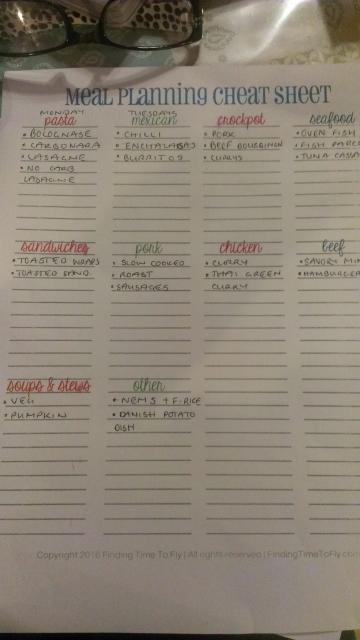 MEAL PLANNING CHEAT SHEET
MONDAY
pasta
• BOLOGNASE
• CARBONARA
• LASAGNE
• NO CARB
LASAGNE
TUESDAYS
mexican
• CHILLI
• ENCHALADAS
• BURRITOS
crockpot
• PORK
• BEEF BOURGINON
• CURRYS
seafood
• OVEN FISH
• FISH PARCE
• TUNA CASSA
sandwiches
• TOASTED WRAPS
• TOASTED SAND.
pork
• SLOW COOKED
• ROAST
• SAUSAGES
chicken
• CURRY
• THAI GREEN
CURRY
beef
• SAVORY MIN
• HAMBURGER
soups & stews
• VEG
• PUMPKIN
other
• NEMS + F.RICE
• DANISH POTATO
DISH
Copyright 2016 Finding Time To Fly | All rights reserved | FindingTimeToFly.com